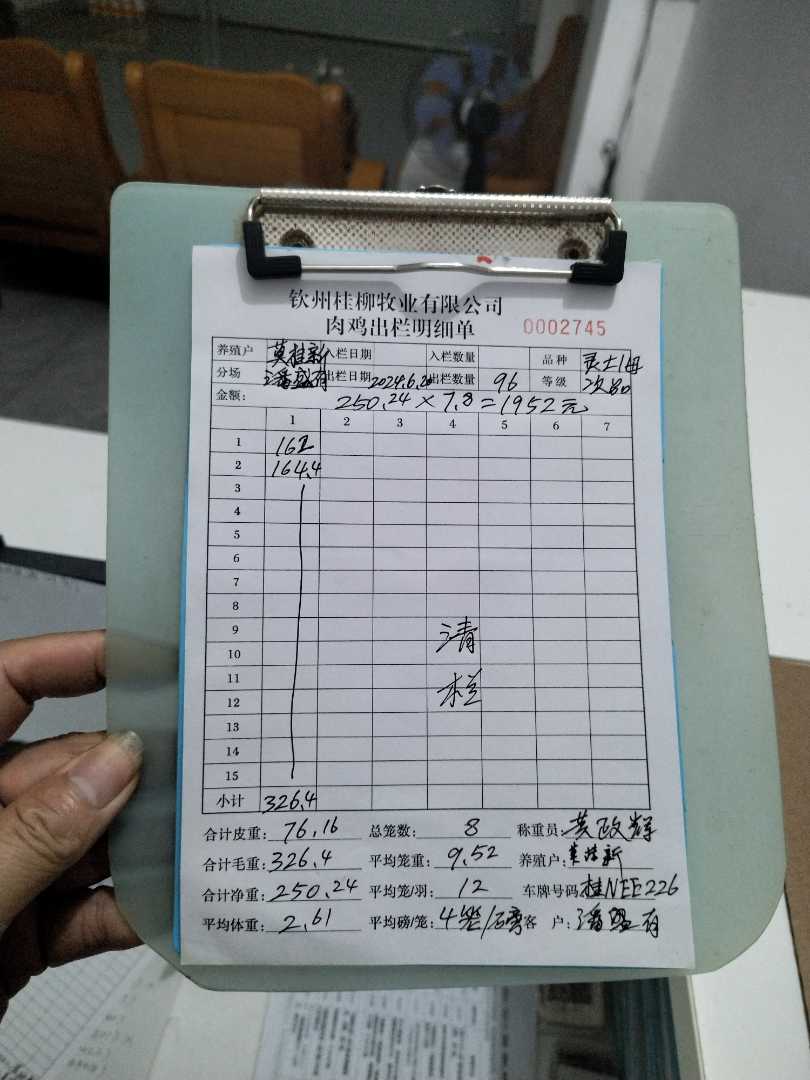 钦州桂柳牧业有限公司
肉鸡出栏明细单 0002745
养殖户 莫桂新 入栏日期 入栏数量 品种 灵土1母
分场 潘盛有 出栏日期 2024.6.20 出栏数量 96 等级 次品
金额: 250.24×7.8=1952元
1 2 3 4 5 6 7
1 162
2 164.4
3
4
5
6
7
8
9 清
10
11
12 栏
13
14
15
小计 326.4
合计皮重: 76.16 总笼数: 8 称重员: 黄政辉
合计毛重: 326.4 平均笼重: 9.52 养殖户: 莫桂新
合计净重: 250.24 平均笼/羽: 12 车牌号码: 桂NEE226
平均体重: 2.61 平均磅/笼: 4笼/磅 客户: 潘盛有